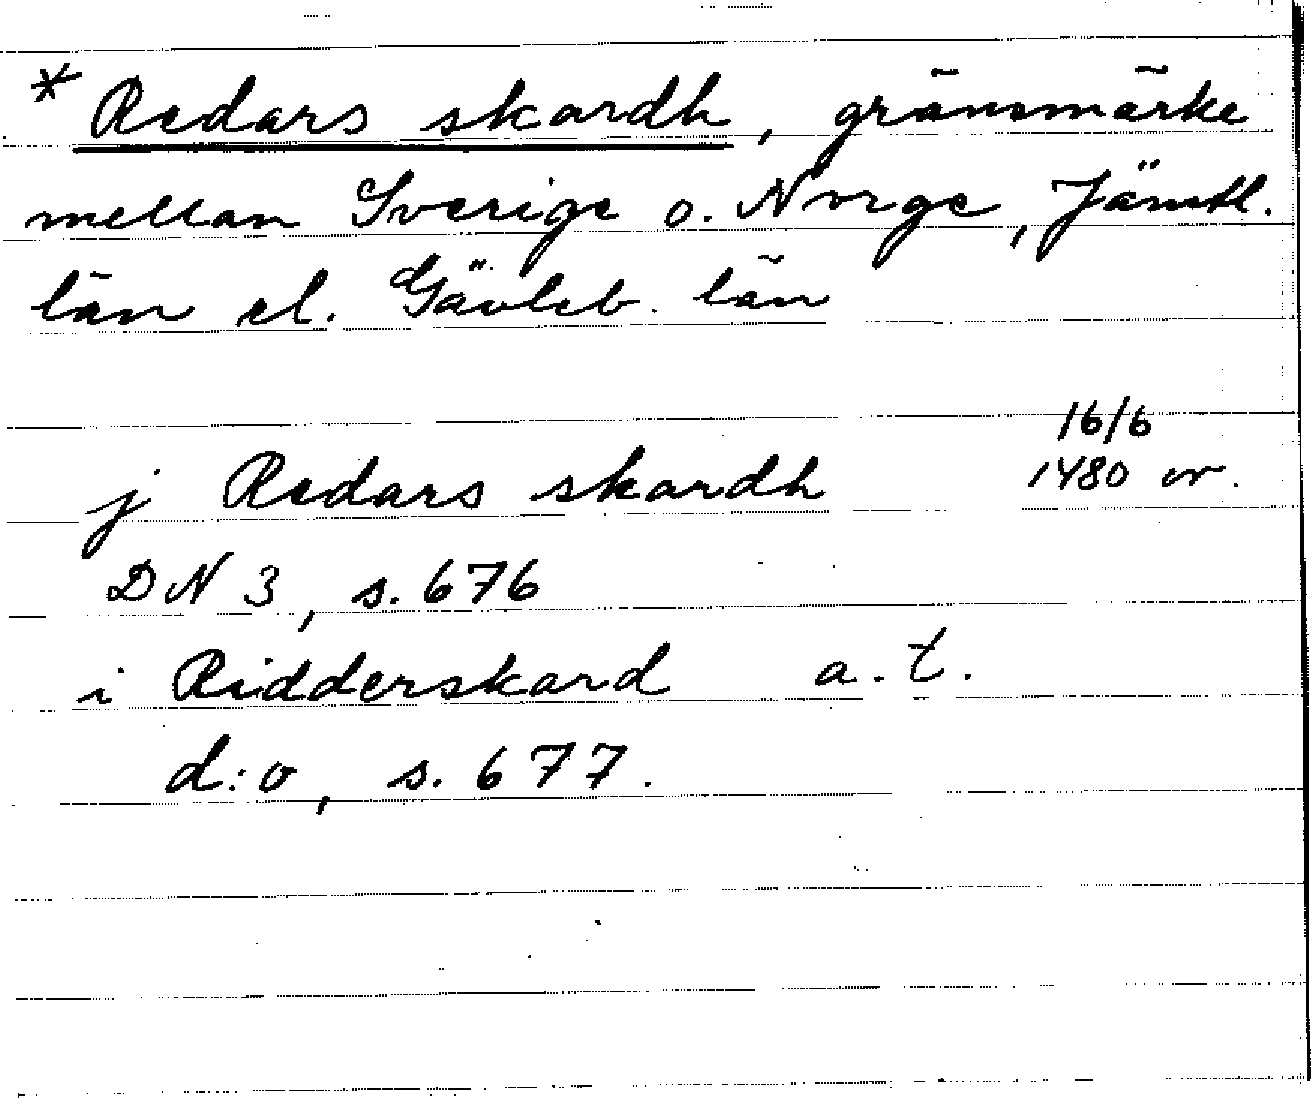 * Redars skardh, gränsmärke
mellan Sverige o. Norge, Jämtl.
län el. Gävleb. län
16/6
j Redars skardh 1480 or.
DN 3, s. 676
i Ridderskard a. t.
d:o, s. 677.